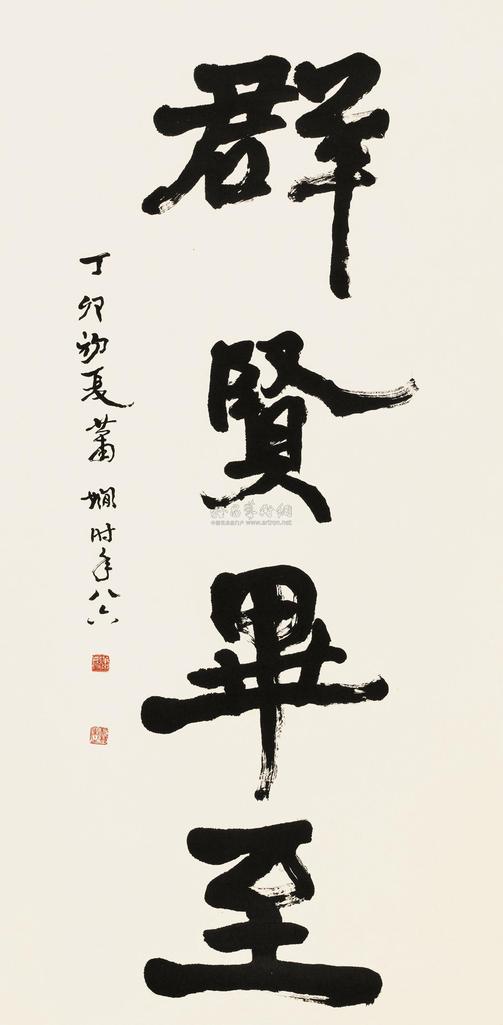 群賢畢至
丁卯初夏蕭嫻时年八六
www.artron.net